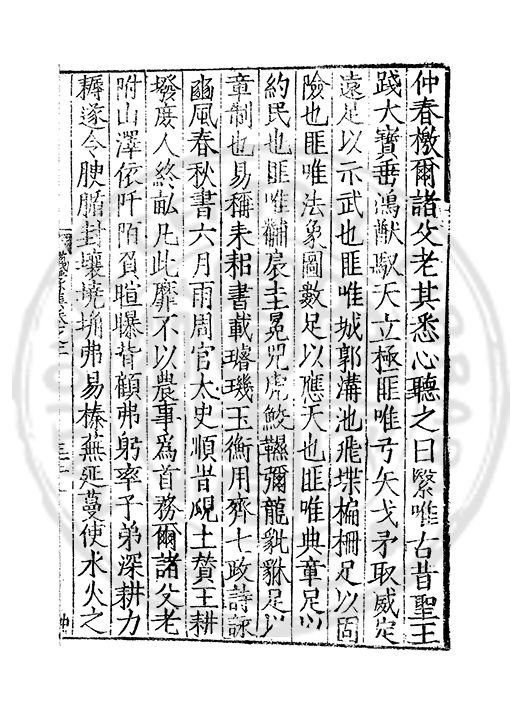 仲春檄爾諸父老其悉心聽之曰繄唯古昔聖王
踐大寶垂鴻猷馭天立極匪唯弓矢戈矛取威定
遠足以示武也匪唯城郭溝池飛堞楄柵足以固
險也匪唯法象圖數足以應天也匪唯典章足以
約民也匪唯黼扆圭冕兕虎鮫韅彌龍貔貅足以
章制也易稱耒耜書載璿璣玉衡用齊七政詩詠
豳風春秋書六月雨周官太史順時覛土贊王耕
墢庶人終畝凡此靡不以農事為首務爾諸父老
附山澤依阡陌負暄曝背顧弗躬率子弟深耕力
耨遂令腴腯封壤墝埆弗易榛蕪延蔓使水火之